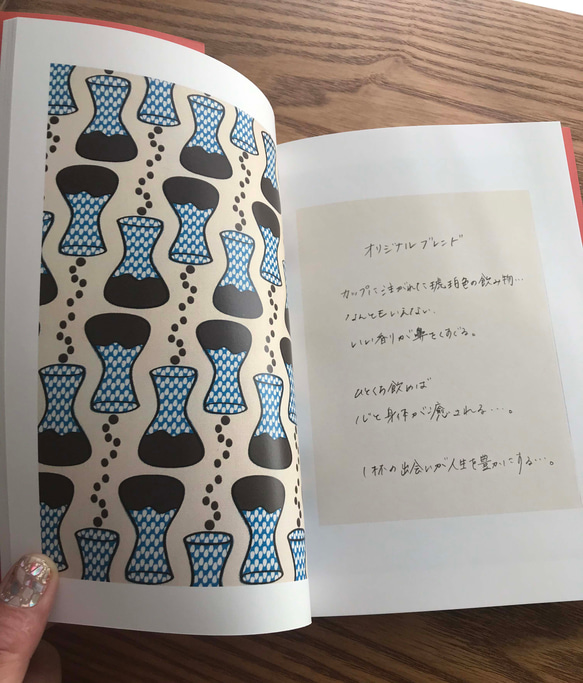 オリジナルブレンド
カップに注がれた琥珀色の飲み物…
なんともいえない
いい香りが鼻をくすぐる。
ひとくち飲めば
心と身体が癒される…。
1杯の出会いが人生を豊かにする…。